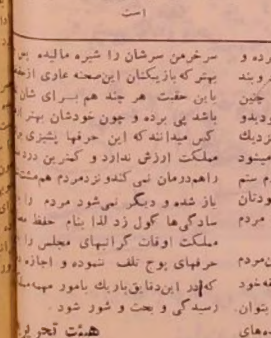 است
سر خرمن سرشان را شیره مالیده پس
بهتر که بازیکنان این صحنه عاری از حقیقت
باین حقیقت هر چند هم برای شان
باشد پی برده و چون خودشان بهتر از
کس میدانند که این حرفها پشیزی بر
مملکت ارزش ندارد و کمترین درد
راهم درمان نمی کند و نزد مردم هم مشت
باز شده و دیگر نمی شود مردم را با
سادگی ها گول زد لذا بنام حفظ مص
مملکت اوقات گرانبهای مجلس را با
حرفهای پوچ تلف ننموده و اجازه
که در این دقایق باریک بامور مهمه
رسیدگی و بحث و شور شود .
هیئت تحریر
رده و
چنین
ودیدو
نزدیك
مینود
م ستم
ودتان
مردم
ن مردم
خود
بتوان